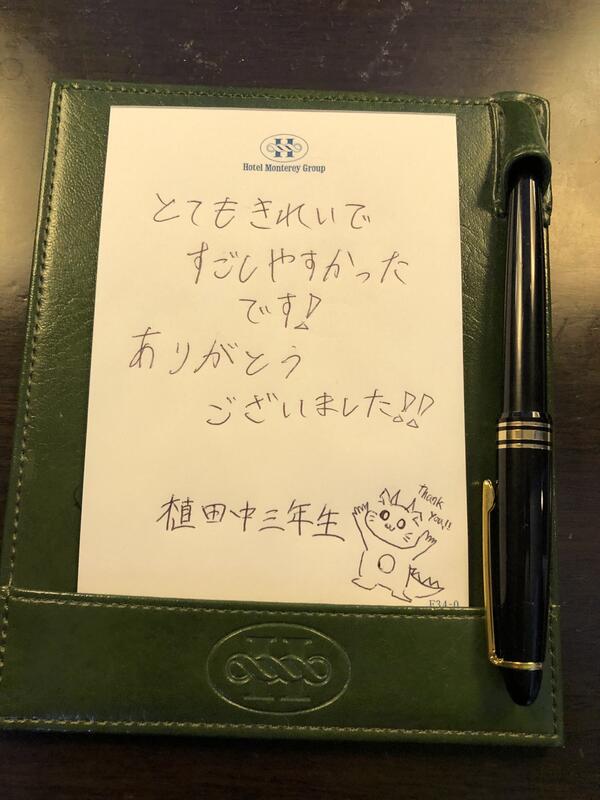 H
Hotel Monterey Group
とてもきれいで
すごしやすかった
です!
ありがとう
ございました!!
植田中三年生
Thank
you!!
F34-0
H